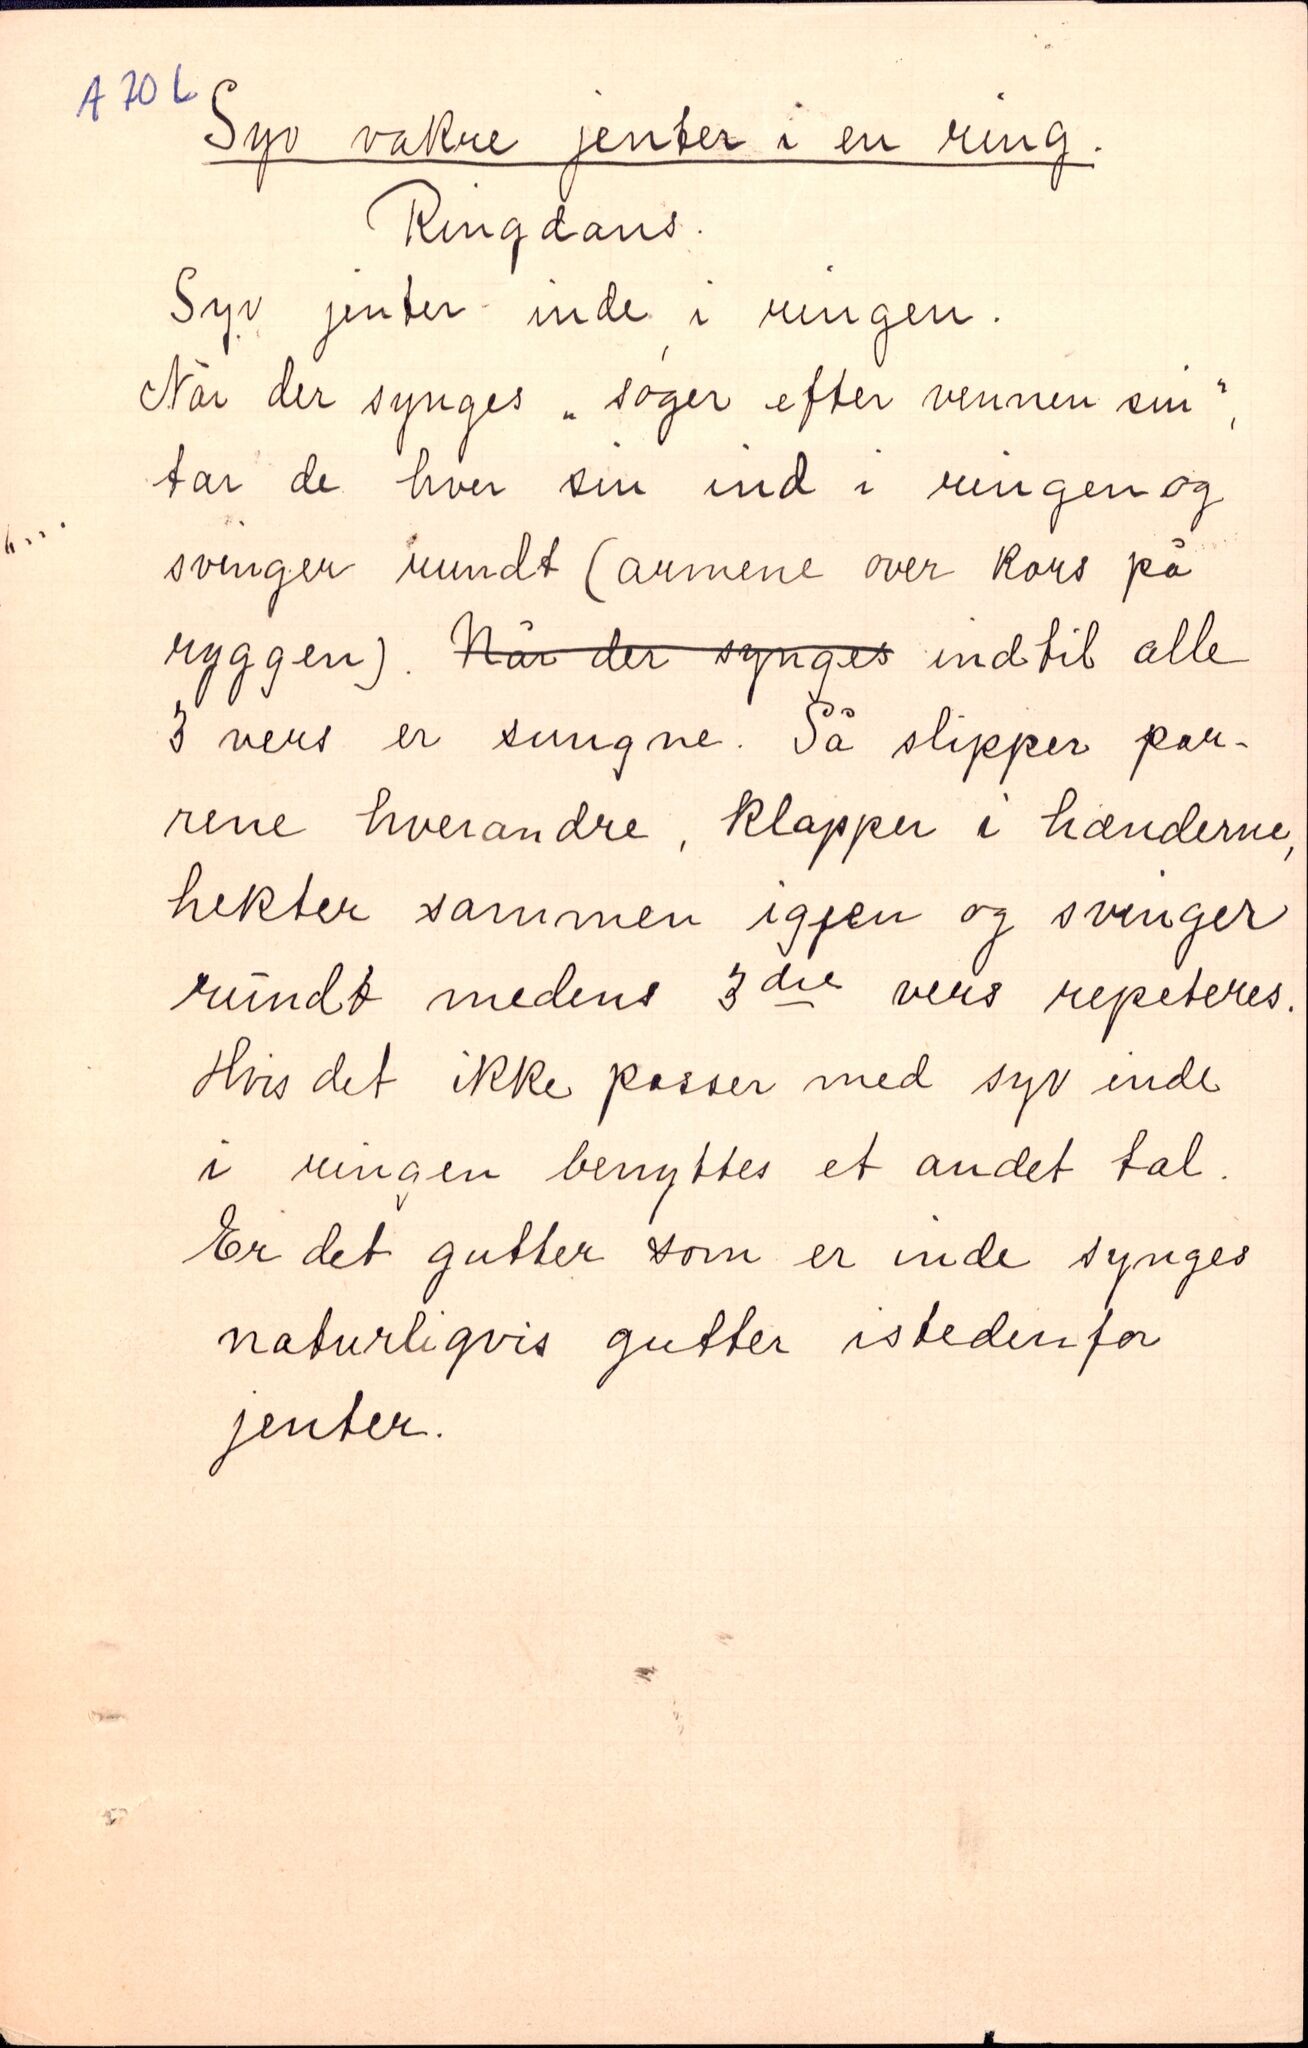 A 70 L
Syv vakre jenter i en ring.
Ringdans.
Syv jenter inde i ringen.
Når der synges „søger efter vennen sin",
tar de hver sin ind i ringen og
svinger rundt (armene over kors på
ryggen). Når der synges indtil alle
3 vers er sungne. Så slipper par-
rene hverandre, klapper i hænderne,
hekter sammen igjen og svinger
rundt medens 3die vers repeteres.
Hvis det ikke passer med syv inde
i ringen benyttes et andet tal.
Er det gutter som er inde synges
naturligvis gutter istedenfor
jenter.